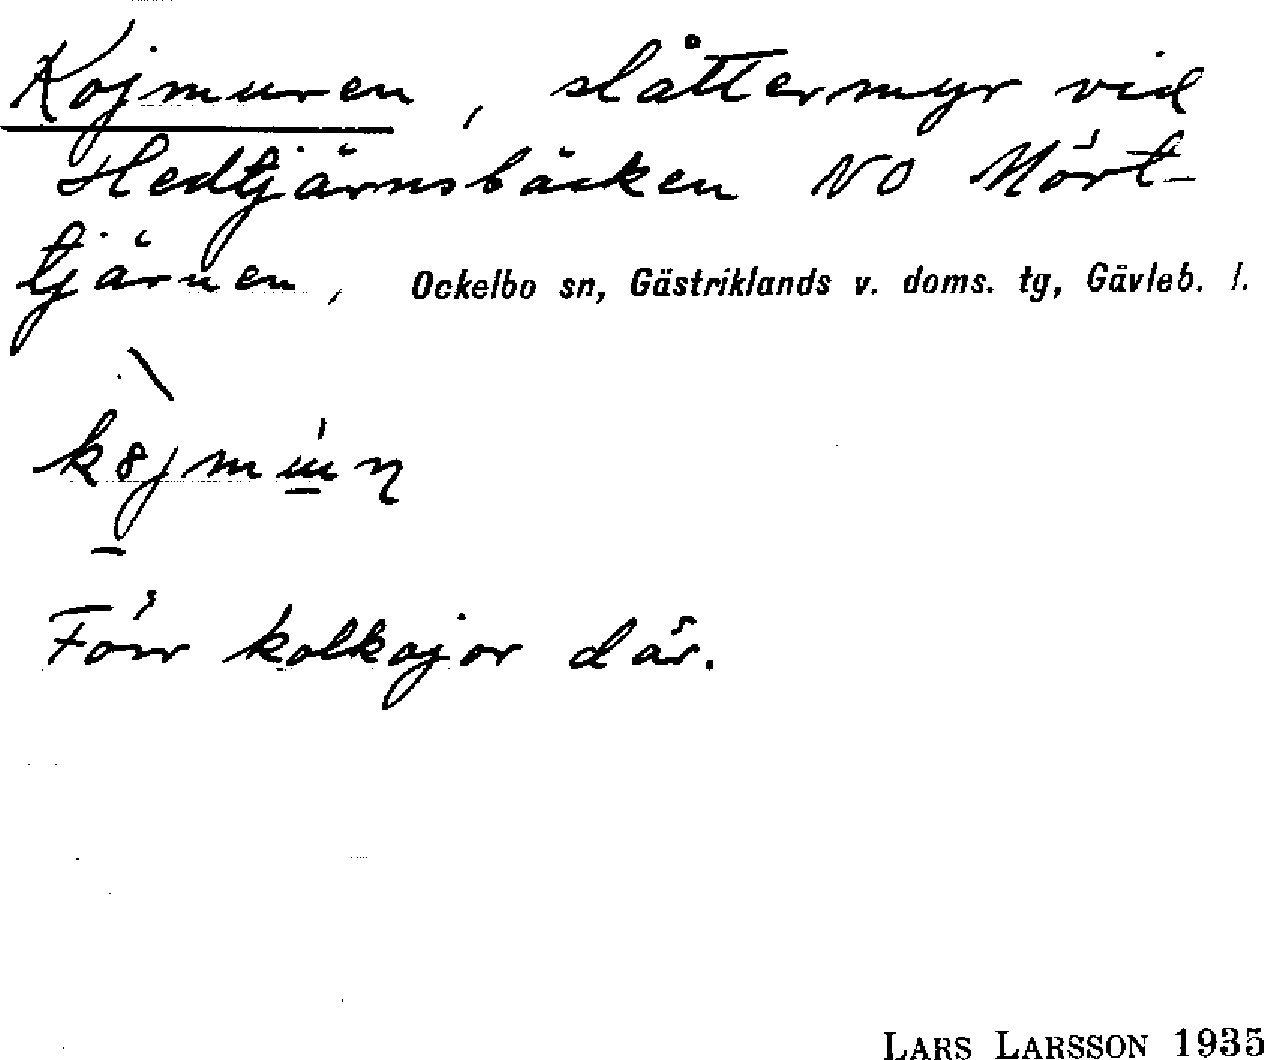 Kojmuren, slåttermyr vid
Hedtjärnsbäcken NO Mört-
tjärnen, Ockelbo sn, Gästriklands v. doms. tg, Gävleb. l.
Förr kolkojor där.
LARS LARSSON 1935